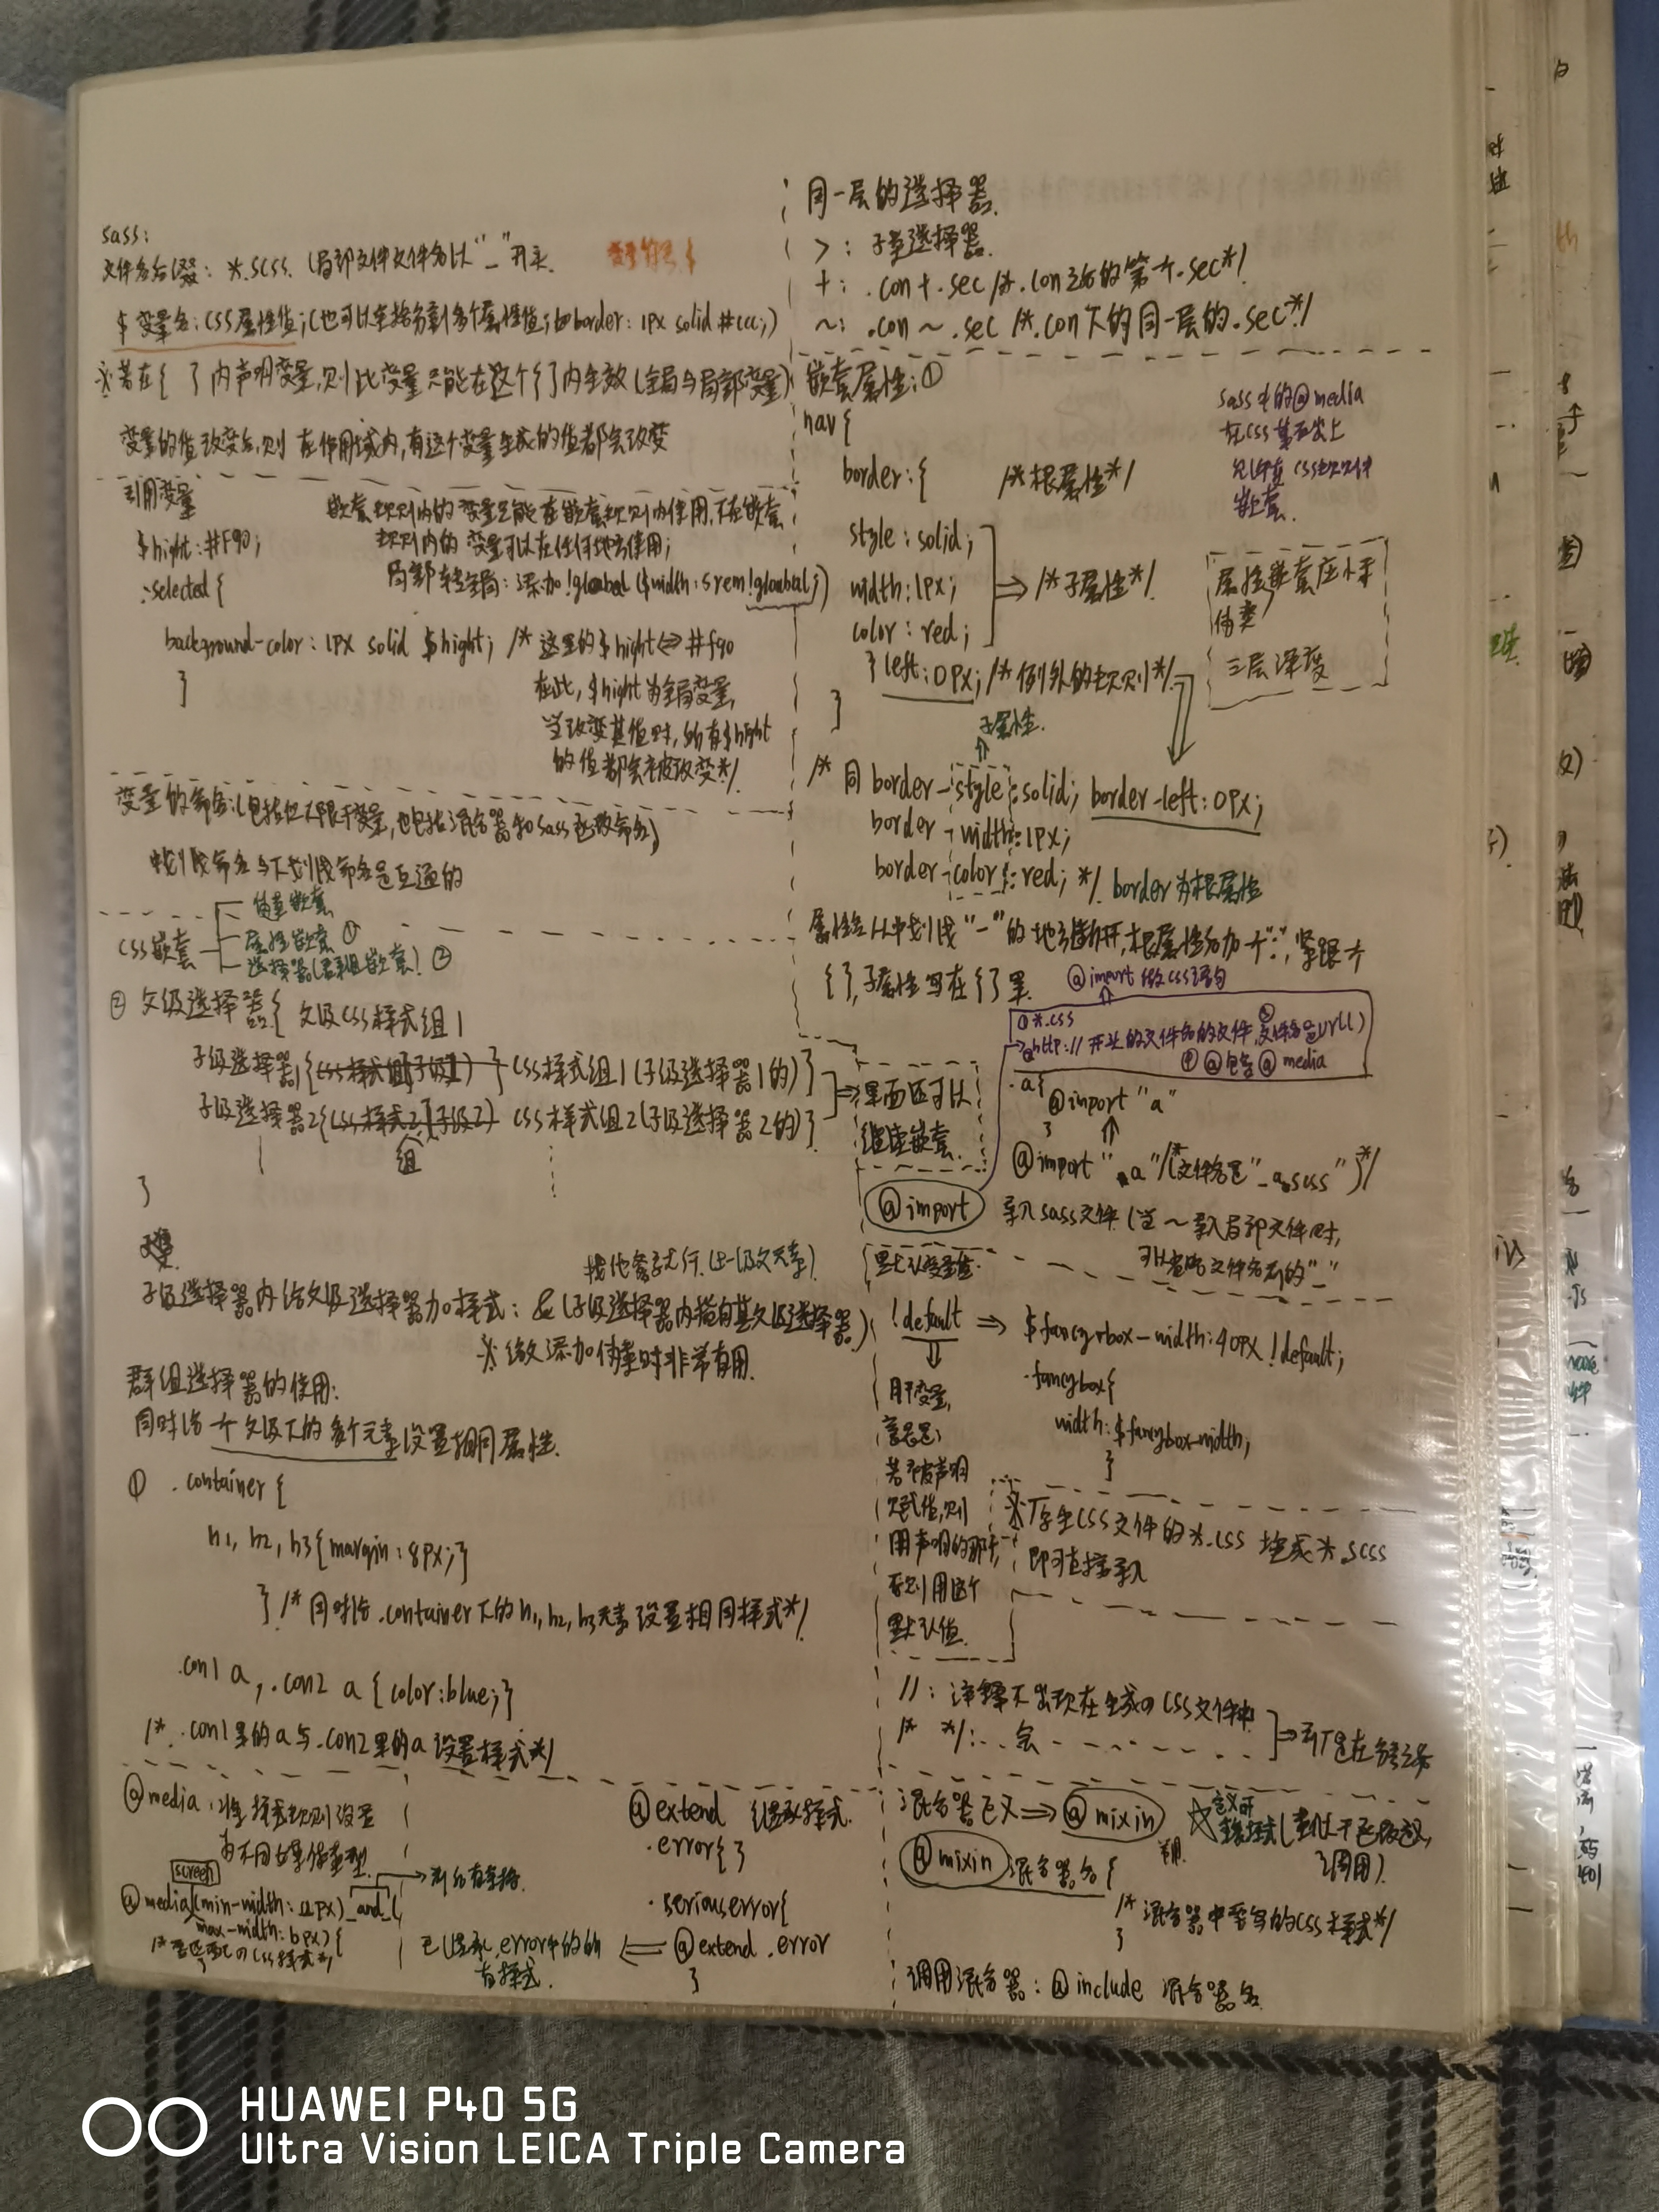 sass:
文件名后缀: *.scss. (局部文件文件名以"_"开头.
$变量名: CSS属性值;(也可以空格分割多个属性值; 如border: 1px solid #ccc;)
※若在{ }内声明变量,则此变量只能在这个{}内生效(全局与局部变量)
变量的值改变后,则在作用域内,有这个变量生成的值都会改变
引用变量
$hight: #F90;
.selected{
background-color: 1px solid $hight; /*这里的$hight⇔#f90
}
在此, $hight为全局变量,
当改变其值时, 所有$hight
的值都会被改变*/
嵌套规则内的变量只能在嵌套规则内使用,不在嵌套
规则内的变量可以在任何地方使用;
局部转全局: 添加!gloabal ($width: 5rem !gloabal;)
变量的命名:(包括但不限于变量,也包括混合器和Sass函数命名)
中划线命名与下划线命名是互通的
CSS嵌套
伪类嵌套
属性嵌套 ①
选择器(群组嵌套) ②
② 父级选择器{ 父级CSS样式组1
子级选择器1{ CSS样式组1(子级选择器1的) }
子级选择器2{ CSS样式组2(子级选择器2的) }
组
}
⇒里面还可以
继续嵌套.
子级选择器内给父级选择器加样式: &(子级选择器内指向其父级选择器)
※做添加伪类时非常有用.
群组选择器的使用:
同时给一个父级下的多个元素设置相同属性.
① .container {
h1, h2, h3{margin: 8px;}
} /*同时给.container下的h1, h2, h3元素设置相同样式*/
.con1 a, .con2 a {color: blue;}
/* .con1里的a与.con2里的a设置样式*/
@media: 将样式规则设置
为不同媒体类型.
screen
@media(min-width: apx)_and_(
max-width: bpx){
前后有空格.
@extend 继承样式.
.error{ }
.seriouserror{
@extend .error
}
已继承.error中的所
有样式.
同一层的选择器.
>: 子类选择器.
+: .con + .sec /*.con之后的第一个.sec*/
~: .con ~ .sec /*.con下的同一层的.sec*/
嵌套属性: ①
nav{
border: { /*根属性*/
style: solid;
width: 1px;
color: red;
⇒ /*子属性*/
} left: 0px; /*例外的规则*/
}
Sass中的@media
在CSS基础上
允许在CSS规则中
嵌套.
属性嵌套应小于
三层深度
子属性.
/*同 border-style: solid; border-left: 0px;
border-width: 1px;
border-color: red; */ border为根属性
属性名从中划线"-"的地方断开,根属性后加一个":",紧跟一个
{ },子属性写在{ }里.
@import 做css语句
①*.css
②http:// 开头的文件名的文件 ③文件名是url()
④@包含@media
.a{
@import "a"
}
@import "a" /*(文件名是"_a.scss")*/
@import 导入sass文件(当~导入局部文件时,
可以省略文件名前的"_"
默认变量值.
!default ⇒ $fancybox-width: 40px !default;
.fancybox{
width: $fancybox-width;
}
用于变量,
意思是:
若已被声明
赋值,则
用声明的那个,
否则用这个
默认值.
※原生CSS文件的*.css 換成*.scss
即可直接导入
//: 注释不出现在生成の CSS文件中
/* */: .. 会
混合器定义⇒ @mixin
@mixin 混合器名 {
/*混合器中要写的CSS样式*/
}
调用混合器: @include 混合器名
HUAWEI P40 5G
Ultra Vision LEICA Triple Camera